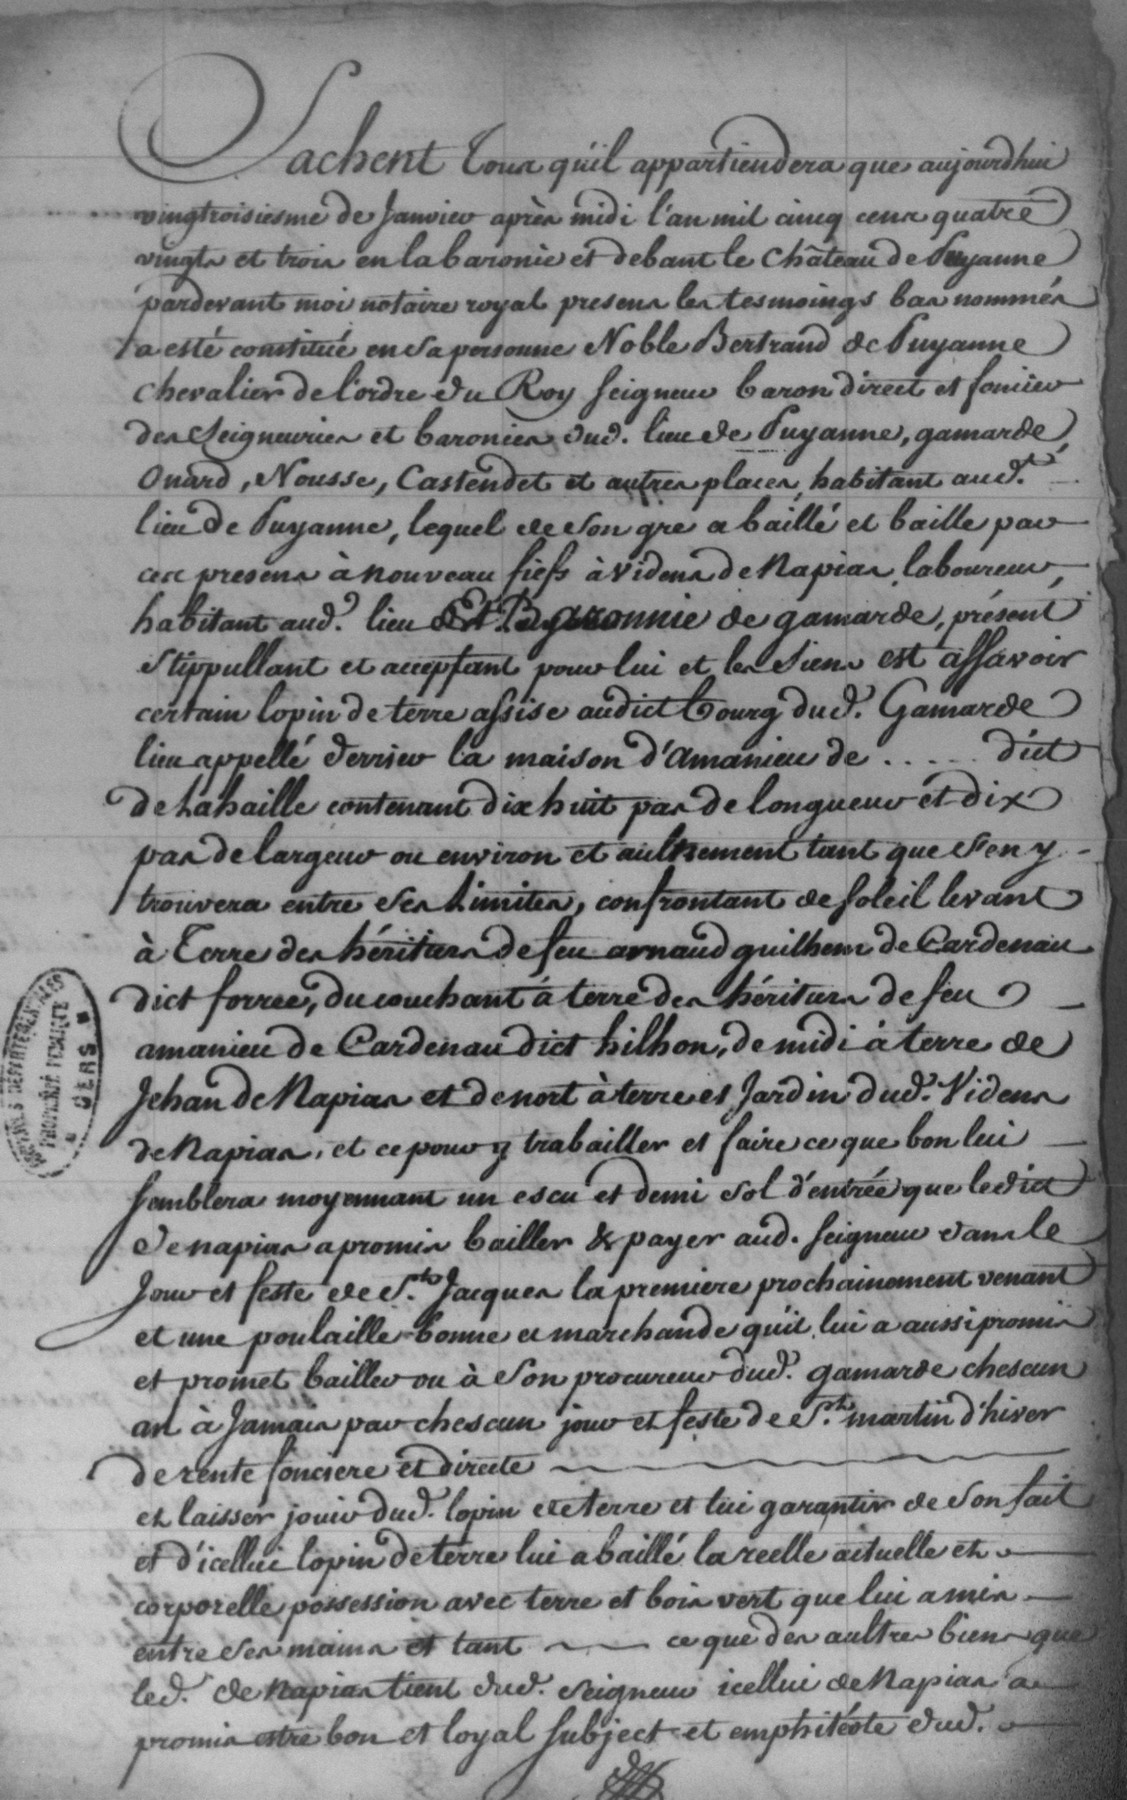 Sachent tous qu'il appartiendera que aujourdhui
vingtroisiesme de Janvier après midi l'an mil cinq cens quatre
vingts et trois en la baronie et debant le Château de Puyanne
pardevant moi notaire royal presens les tesmoings bas nommés
a esté constitué en sa personne Noble Bertrand de Puyanne
chevalier de l'ordre du Roy seigneur baron direct et foncier
des seigneuries et baronies dud. lieu de Puyanne, gamarde,
Onard, Nousse, Castendet et autres places, habitant aud.
lieu de Puyanne, lequel de son gre a baillé et baille par
ces presens à nouveau fiefs à Videns de Napias laboureur,
habitant aud. lieu et Baronnie de gamarde, présent
stippullant et acceptant pour lui et les siens est assavoir
certain lopin de terre assise audict bourg dud. Gamarde
lieu appellé derrier la maison d'Amanieu de ..... dict
de Lahaille contenant dix huit pas de longueur et dix
pas de largeur ou environ et aultrement tant que s'en y
trouvera entre ses limites, confrontant de soleil levant
à Terre des héritiers de feu arnaud guilhem de Cardenau
dict forree, du couchant à terre des héritiers de feu
amanieu de Cardenau dict hilhon, de midi à terre de
Jehan de Napias et de nort à terre et Jardin dud. Videns
de Napias, et ce pour y trabailler et faire ce que bon lui
semblera moyennant un escu et demi sol d'entrée que ledict
de napias a promis bailler & payer aud. seigneur dans le
Jour et feste de St. Jacques la premiere prochainement venant
et une poulaille bonne et marchande qu'il lui a aussi promis
et promet bailler ou à son procureur dud. gamarde chescun
an à Jamais par chescun jour et feste de St. martin d'hiver
de rente fonciere et directe
et laisser jouir dud. lopin de terre et lui garantir de son fait
et d'icellui lopin de terre lui a baillé la reelle actuelle et
corporelle possession avec terre et bois vert que lui a mis
entre ses mains et tant ce que des aultres biens que
led. de Napias tient dud. seigneur icellui de Napias a
promis estre bon et loyal subject et emphitéote dud.
ARCHIVES DÉPARTEMENTALES
PROPRIÉTÉ PUBLIQUE
GERS